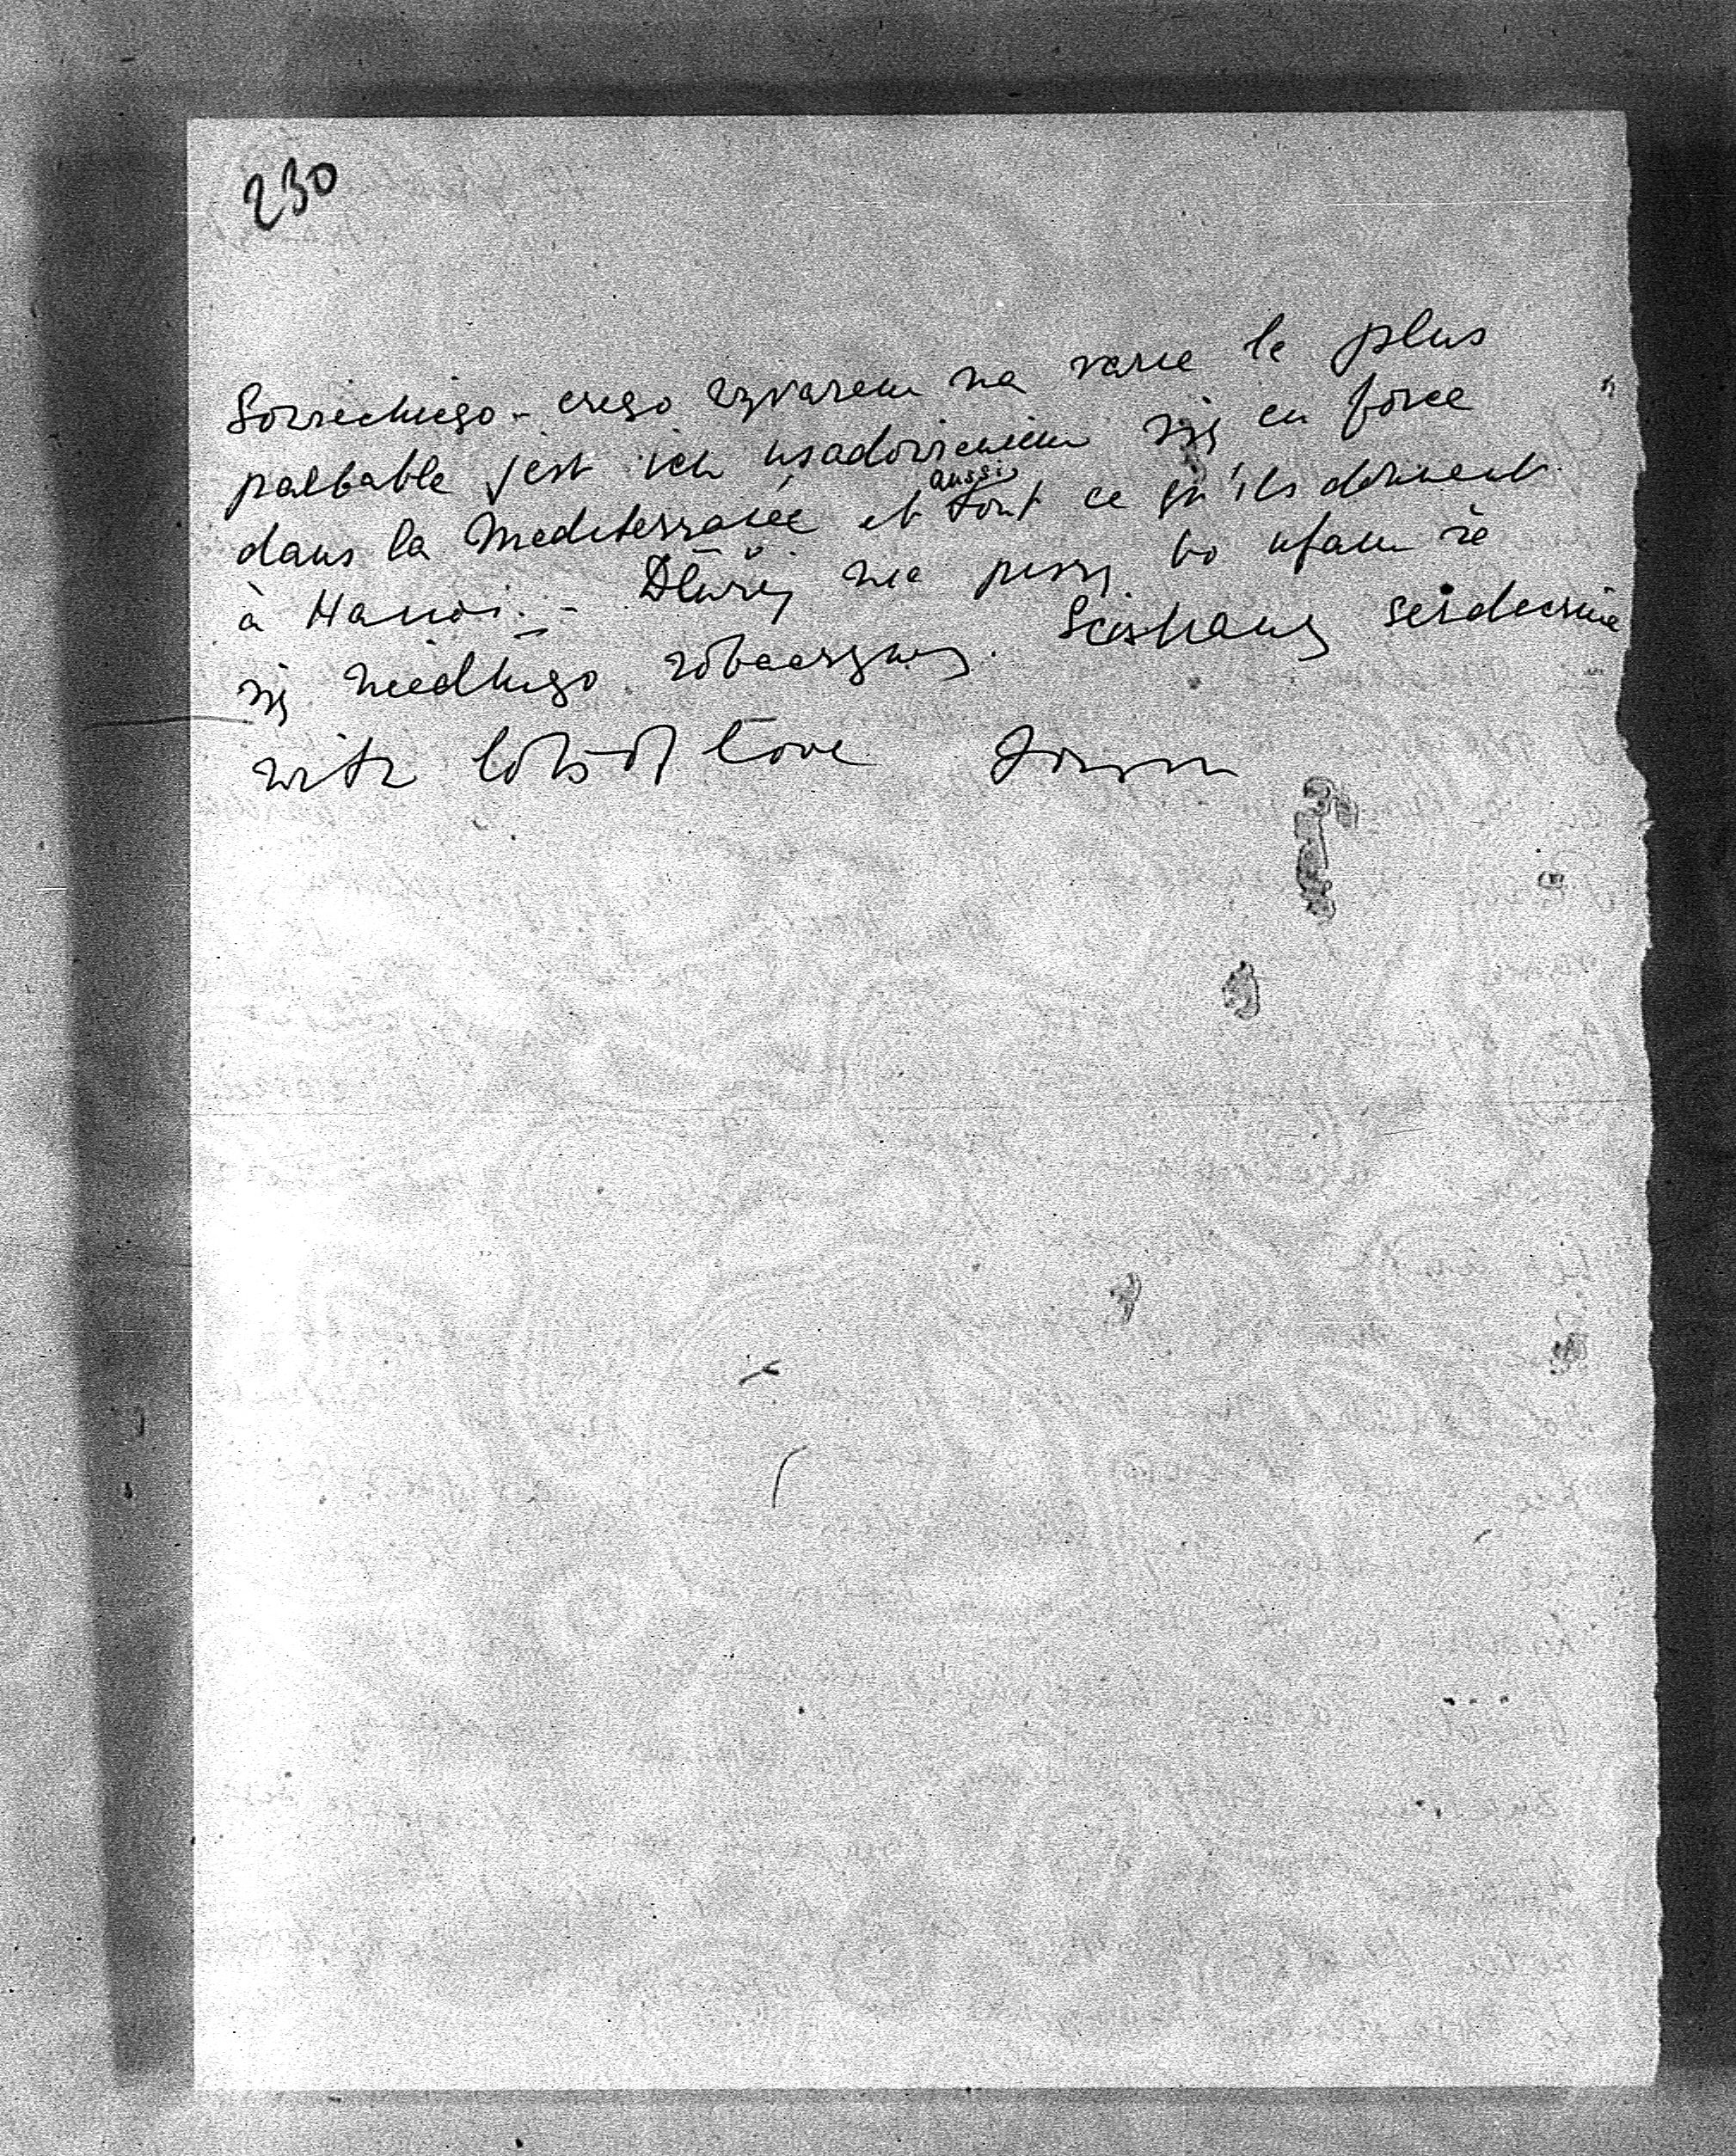 230
Sowieckiego - czego wyrazem na razie le plus
palbable jest ich usadowieniem się en force
dans la Mediterranée et aussi tout ce qu'ils donnent
à Hanoi. - Dłużej nie piszę bo ufam że
się niedługo zobaczymy. Ściskamy serdecznie
with lots of love